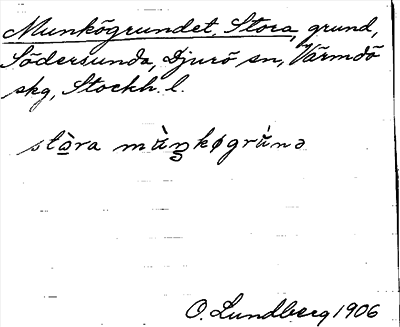 Munkögrundet, Stora, grund,
Södersunda, Djurö sn, Värmdö
skg, Stockh. l.
stòra mùŋkøgrùnə
O. Lundberg 1906